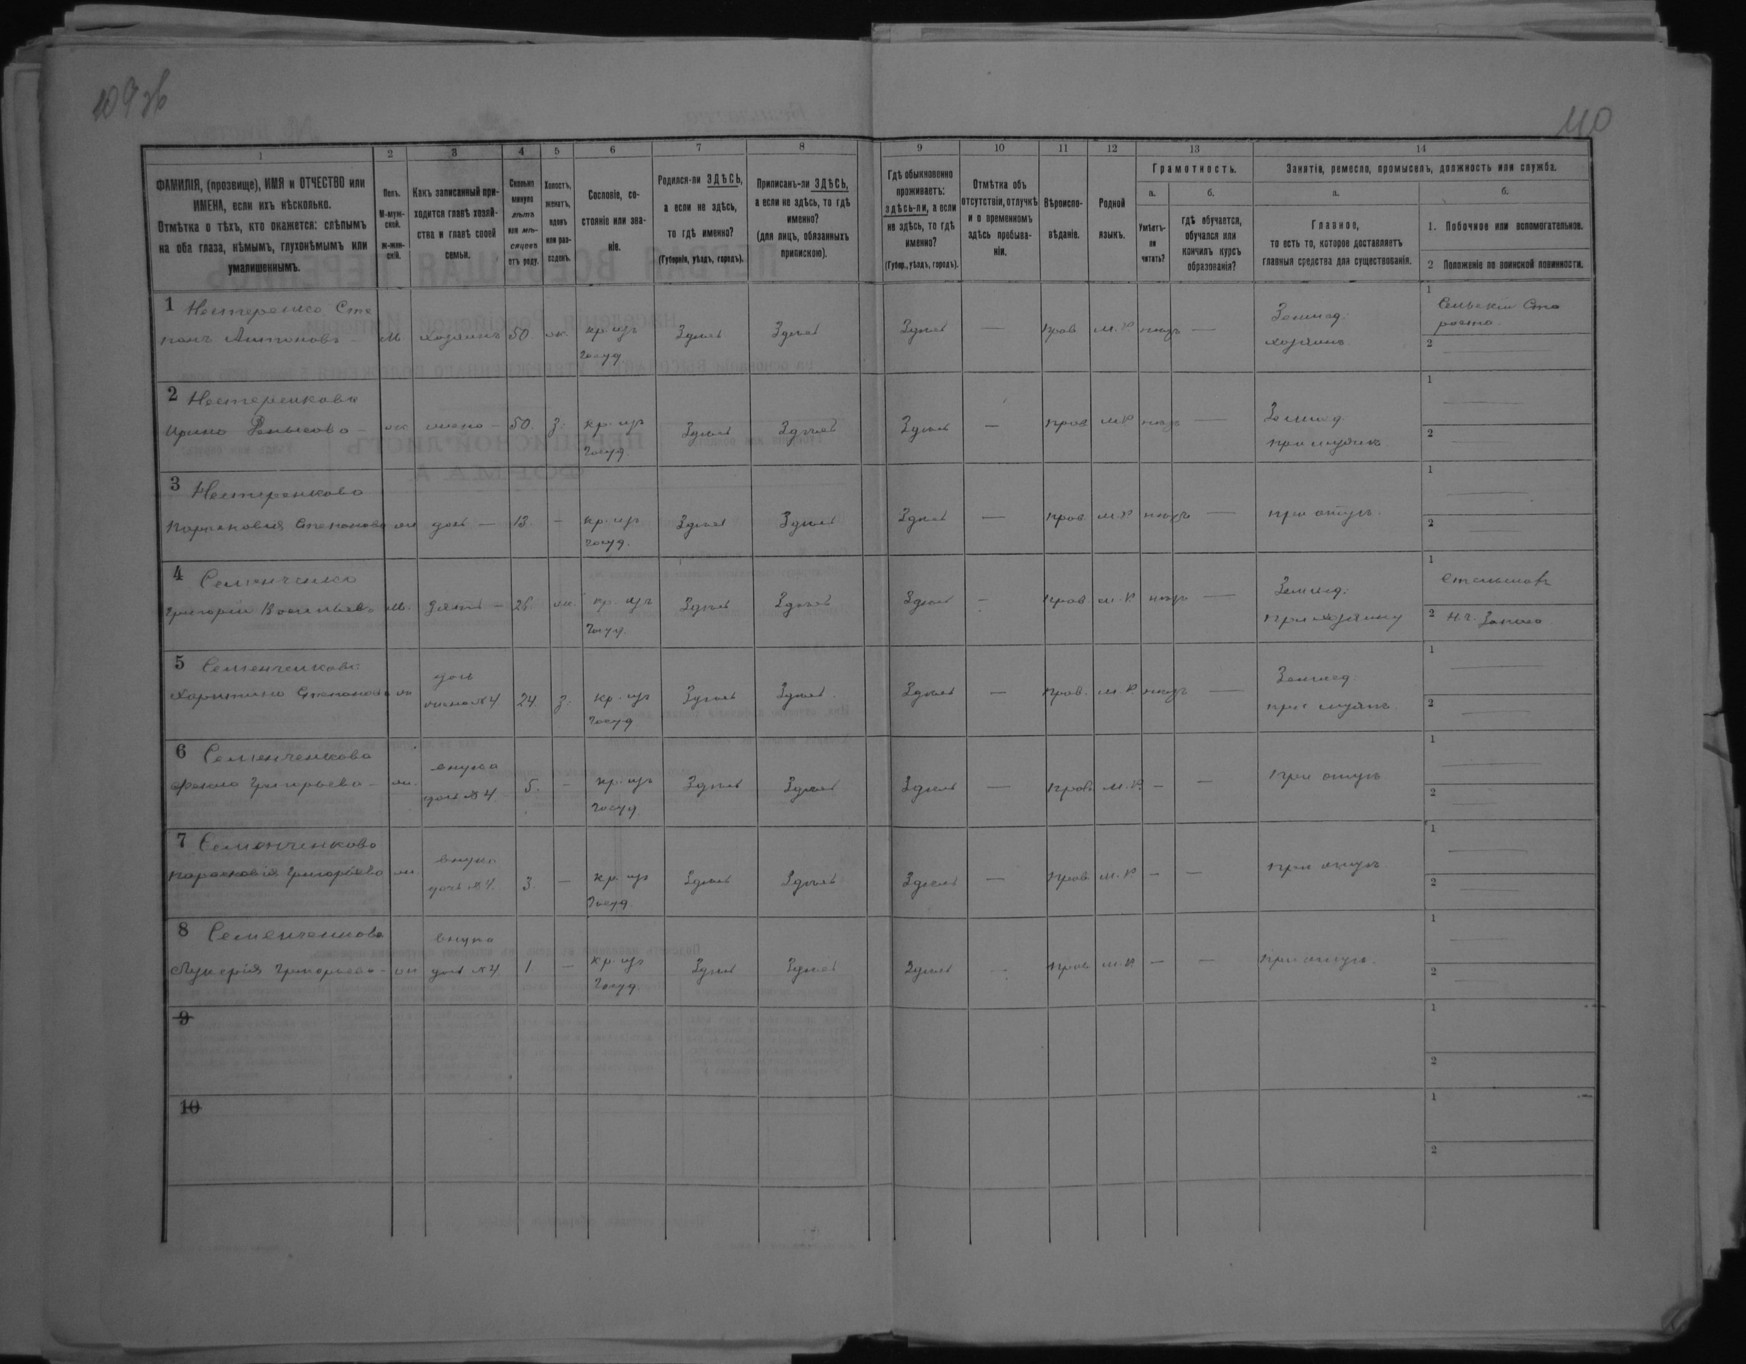 109 об
110
1 2 3 4 5 6 7 8 9 10 11 12 13 14
ФАМИЛІЯ, (прозвище), ИМЯ и ОТЧЕСТВО или
ИМЕНА, если ихъ нѣсколько.
Отмѣтка о тѣхъ, кто окажется: слѣпымъ
на оба глаза, нѣмымъ, глухонѣмымъ или
умалишеннымъ.
Полъ.
М-муж-
ской.
ж-жен-
скій.
Какъ записанный при-
ходится главѣ хозяй-
ства и главѣ своей
семьи.
Сколько
минуло
лѣтъ
или мѣ-
сяцевъ
отъ роду.
Холостъ,
женатъ,
вдовъ
или раз-
веденъ.
Сословіе, со-
стояніе или зва-
ніе.
Родился-ли ЗДѢСЬ,
а если не здѣсь,
то гдѣ именно?
(Губернія, уѣздъ, городъ).
Приписанъ-ли ЗДѢСЬ,
а если не здѣсь, то гдѣ
именно?
(для лицъ, обязанныхъ
припискою).
Гдѣ обыкновенно
проживаетъ:
здѣсь-ли, а если
не здѣсь, то гдѣ
именно?
(Губер., уѣздъ, городъ).
Отмѣтка объ
отсутствіи, отлучкѣ
и о временномъ
здѣсь пребыва-
ніи.
Вѣроиспо-
вѣданіе.
Родной
языкъ.
Грамотность.
а.
Умѣетъ-
ли
читать?
б.
Гдѣ обучается,
обучался или
кончилъ курсъ
образованія?
Занятіе, ремесло, промыселъ, должность или служба.
а.
Главное,
то есть то, которое доставляетъ
главныя средства для существованія.
б.
1. Побочное или вспомогательное.
2 Положеніе по воинской повинности.
1 Нестеренко Сте
панъ Антоновъ — М хозяинъ 50 ж. кр. изъ
госуд Здѣсь Здѣсь Здѣсь — прав м.р нѣтъ — Землед.
хозяинъ 1 Сельскій Ста
роста
2 —
2 Нестеренкова
Ирина Денисова — ж жена — 50 з. кр. изъ
госуд Здѣсь Здѣсь Здѣсь — прав м.р нѣтъ — Землед
при мужѣ 1 —
2 —
3 Нестеренкова
Парасковия Степанова ж дочь — 13 — кр. изъ
госуд. Здѣсь Здѣсь Здѣсь — прав м.р нѣтъ — при отцѣ 1 —
2 —
4 Семенченко
Григорій Васильевъ М. зять — 26 ж. кр. изъ
госуд. Здѣсь Здѣсь Здѣсь — прав. м.р нѣтъ — Землед.
при хозяину 1
2
5 Семенченкова
Харитина Степанова ж дочь
жена №4 24 з. кр. изъ
госуд Здѣсь Здѣсь Здѣсь — прав. м.р нѣтъ — Землед
при мужѣ 1 —
2 —
6 Семенченкова
Фекла Григорьева — ж. внука
дочь №4 5. — кр. изъ
госуд Здѣсь Здѣсь Здѣсь — прав м.р — — при отцѣ 1 —
2 —
7 Семенченкова
Парасковія Григорьева ж. внука
дочь №4. 3. — кр. изъ
госуд. Здѣсь Здѣсь Здѣсь — прав м.р — — при отцѣ 1 —
2 —
8 Семенченкова
Лукерія Григорьева — ж внука
дочь №4 1 — кр. изъ
госуд. Здѣсь Здѣсь Здѣсь — прав м.р — — при отцѣ 1 —
2 —
9 1
2
10 1
2